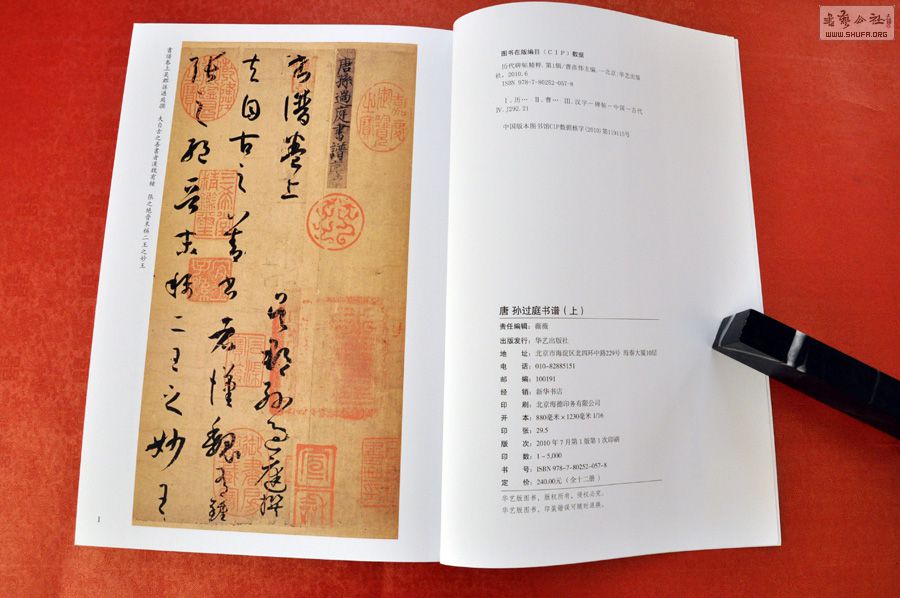 書譜卷上吴郡孫過庭撰 夫自古之善書者漢魏有鍾 張之絶晉末稱二王之妙王
唐孫過庭書譜
書譜卷上 吴郡孫過庭撰
夫自古之善書者漢魏有鍾
張之絶晉末稱二王之妙王
1
图书在版编目(CIP)数据
历代碑帖精粹. 第1辑/曹彦伟主编. —北京:华艺出版
社, 2010.6
ISBN 978-7-80252-057-8
Ⅰ. 历… Ⅱ. 曹… Ⅲ. 汉字-碑帖-中国-古代
Ⅳ. J292.21
中国版本图书馆CIP数据核字(2010)第119115号
唐 孙过庭书谱(上)
责任编辑:薇薇
出版发行:华艺出版社
地 址:北京市海淀区北四环中路229号 海泰大厦10层
电 话:010-82885151
邮 编:100191
经 销:新华书店
印 刷:北京海德印务有限公司
开 本:880毫米×1230毫米 1/16
印 张:29.5
版 次:2010年7月第1版第1次印刷
印 数:1-5,000
书 号:ISBN 978-7-80252-057-8
定 价:240.00元(全十二册)
华艺版图书,版权所有,侵权必究。
华艺版图书,印装错误可随时退换。
WWW.SHUFA.ORG